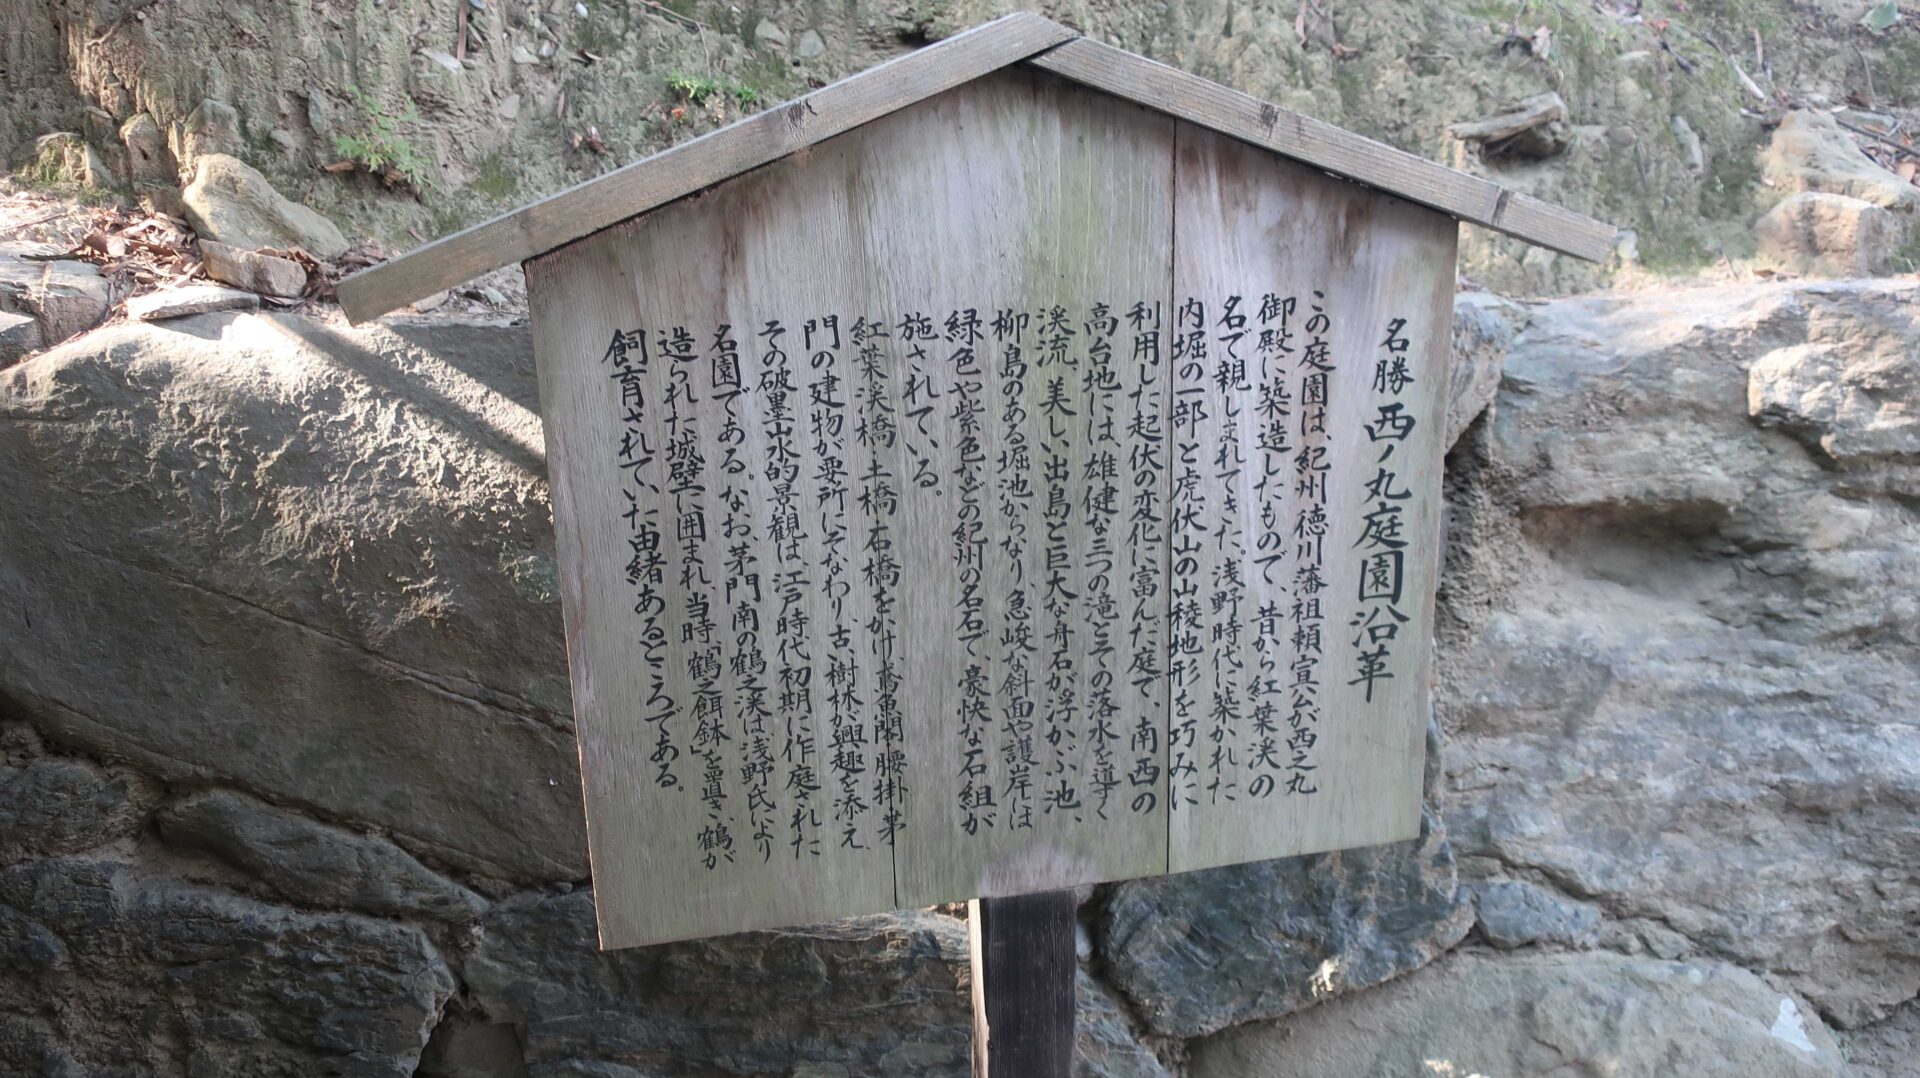 名勝 西ノ丸庭園沿革
この庭園は、紀州徳川藩祖頼宣公が西之丸
御殿に築造したもので、昔から紅葉渓の
名で親しまれてきた。浅野時代に築かれた
内堀の一部と虎伏山の山稜地形を巧みに
利用した起伏の変化に富んだ庭で、南西の
高台地には、雄健な三つの滝とその落水を導く
渓流、美しい出島と巨大な舟石が浮かぶ池、
柳島のある堀池からなり、急峻な斜面や護岸には
緑色や紫色などの紀州の名石で、豪快な石組が
施されている。
紅葉渓橋・土橋・石橋をかけ、鳶魚閣・腰掛・茅
門の建物が要所にそなわり、古い樹林が興趣を添え
その破墨山水的景観は、江戸時代初期に作庭された
名園である。なお、茅門南の鶴之渓は、浅野氏により
造られた城壁に囲まれ、当時、「鶴之餌鉢」を置き、鶴が
飼育されていた由緒あるところである。